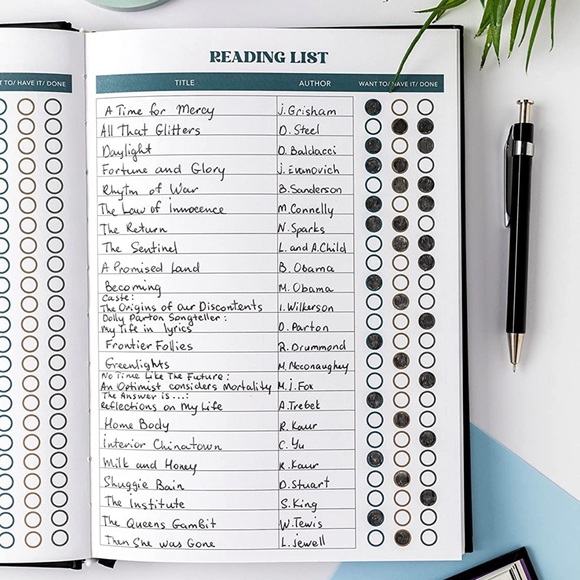 T TO/ HAVE IT/ DONE
READING LIST
TITLE AUTHOR WANT TO/ HAVE IT/ DONE
A Time for Mercy J. Grisham
All That Glitters D. Steel
Daylight D. Baldacci
Fortune and Glory J. Evanovich
Rhytm of War B. Sanderson
The Law of Innocence M. Connelly
The Return N. Sparks
The Sentinel L. and A. Child
A Promised Land B. Obama
Becoming M. Obama
Caste:
The Origins of our Discontents I. Wilkerson
Dolly Parton Songteller:
My life in lyrics D. Parton
Frontier Follies R. Drummond
Greenlights M. Mcconaughey
No Time Like The Future:
An Optimist considers Mortality M. J. Fox
The Answer is...:
Reflections on My Life A. Trebek
Home Body R. Kaur
Interior Chinatown C. Yu
Milk and Honey R. Kaur
Shuggie Bain D. Stuart
The Institute S. King
The Queens Gambit W. Tewis
Then She was Gone L. Jewell